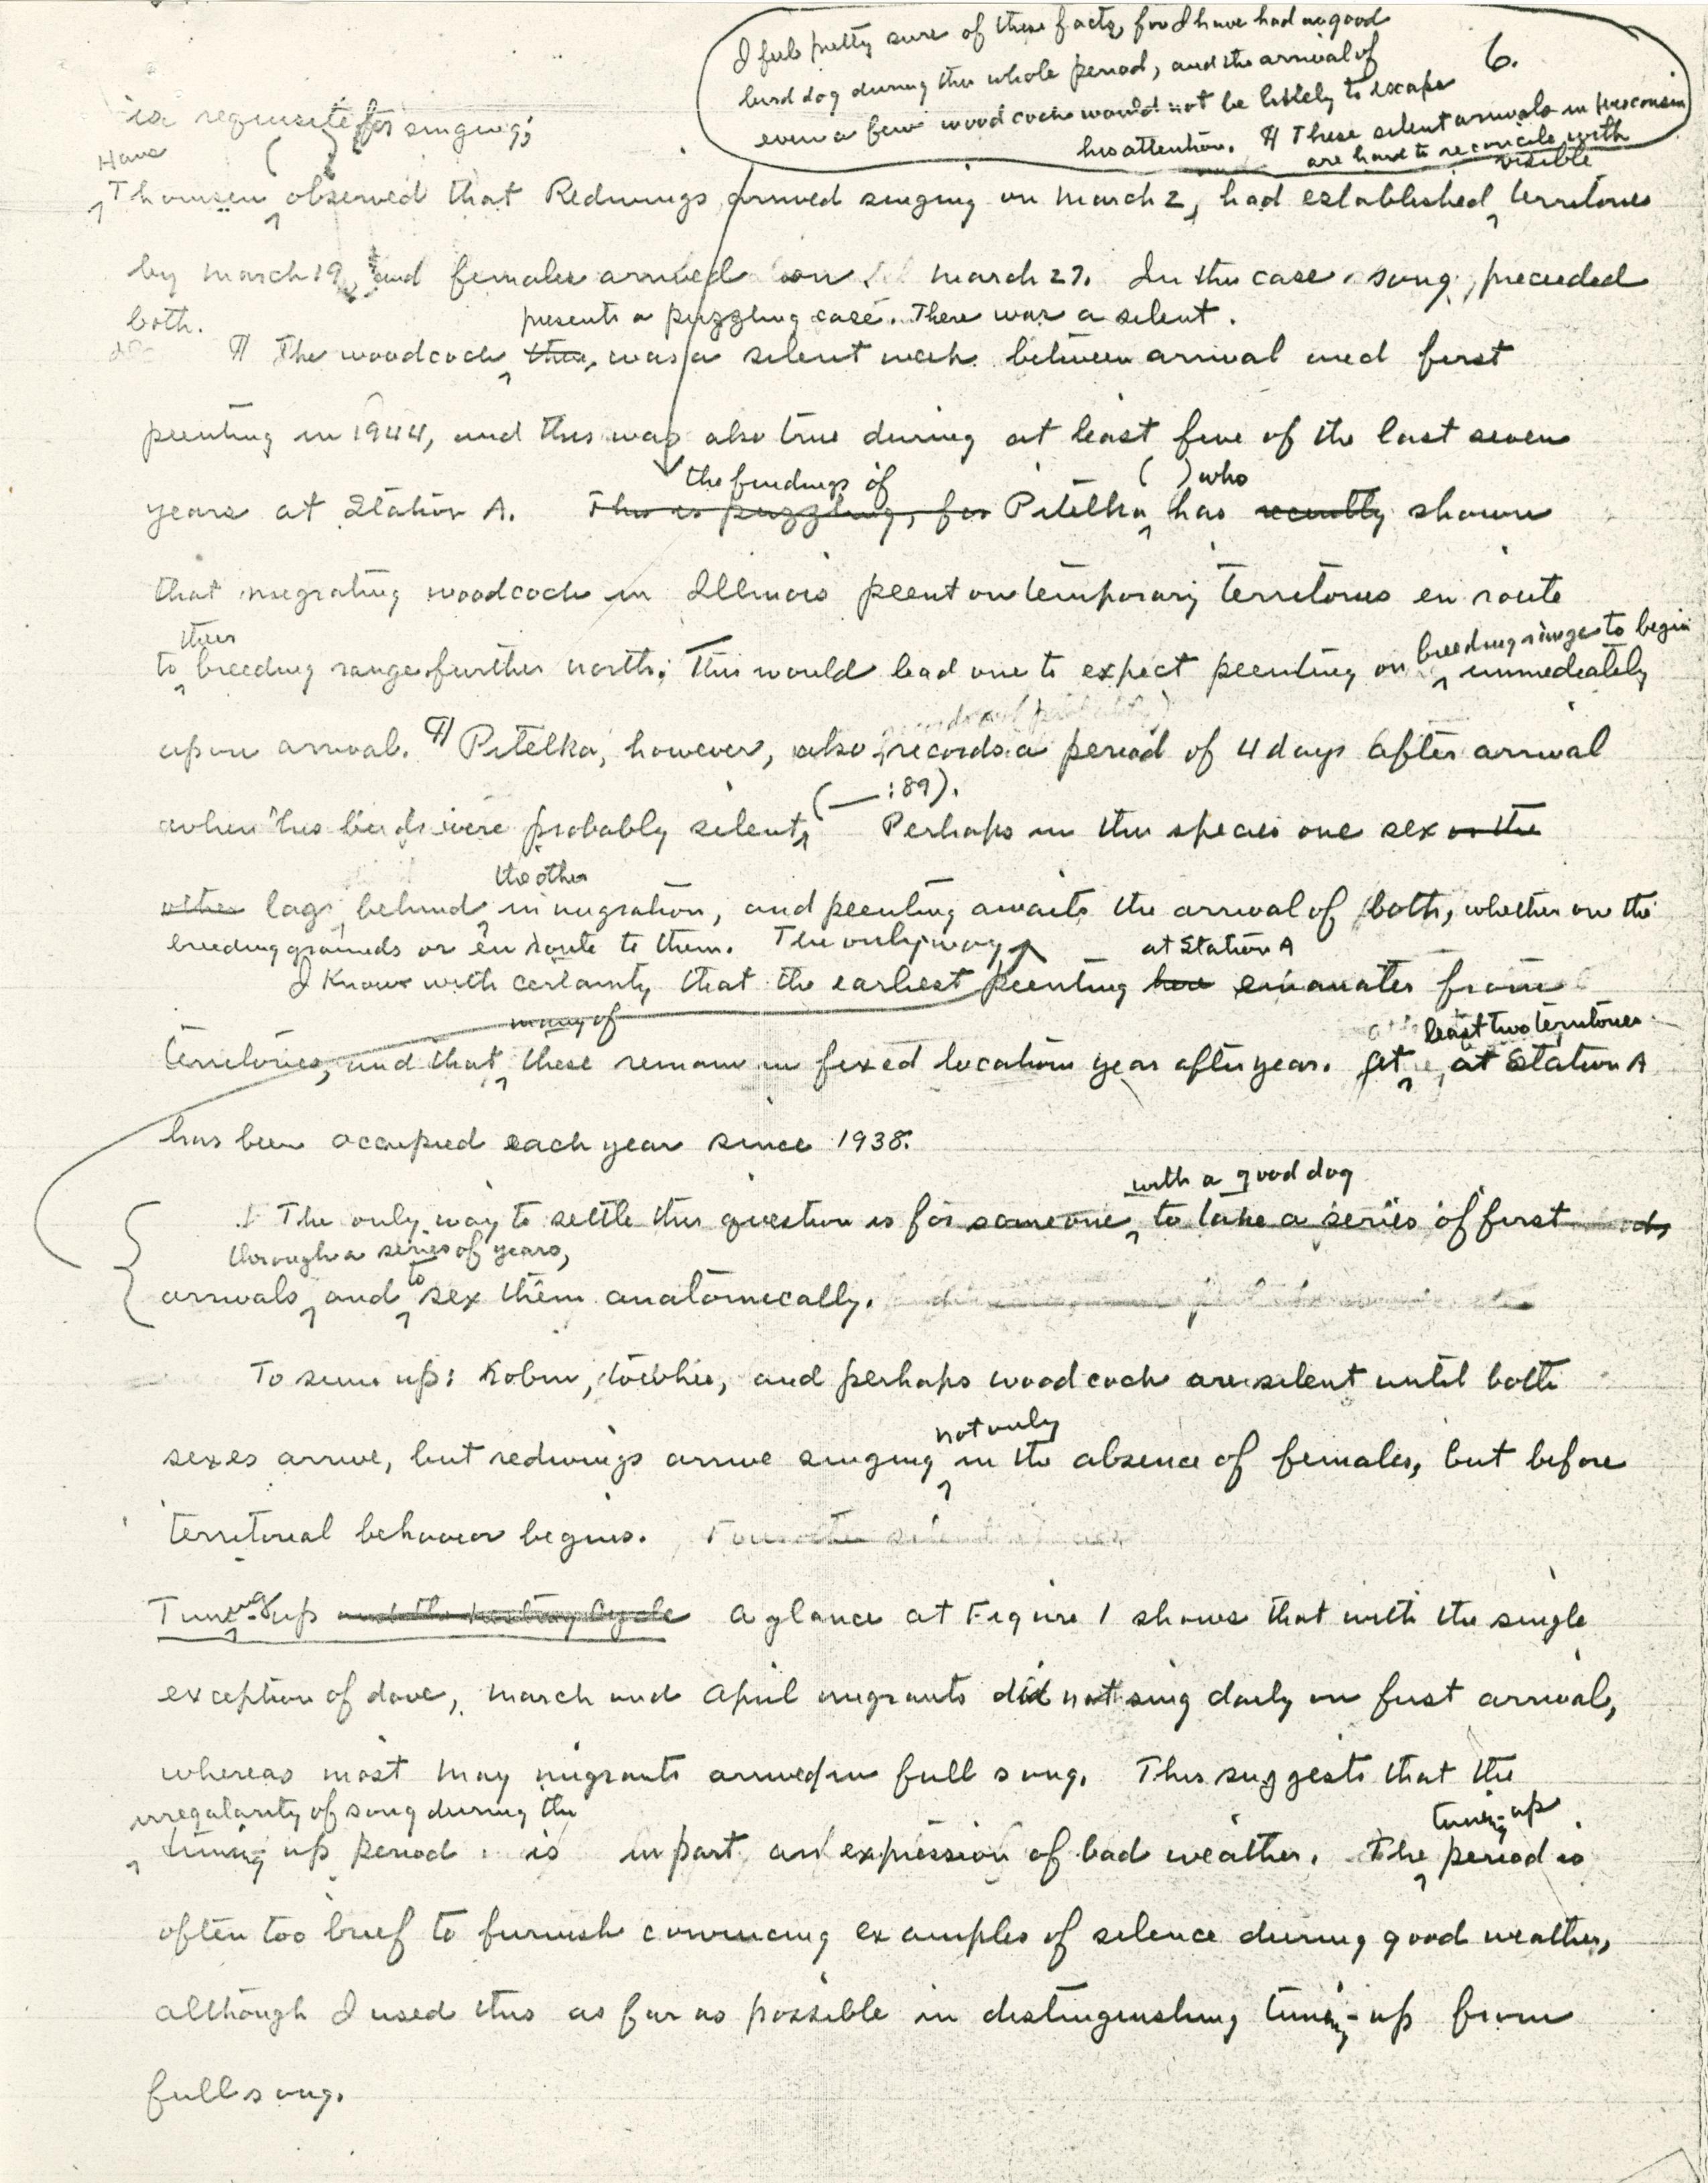 I feel pretty sure of these facts, for I have had a good
bird dog during this whole period, and the arrival of
6.
even a few woodcock would not be likely to escape
his attention. ¶ These silent arrivals in Wisconsin
are hard to reconcile with
is a requisite for singing;
Have
( )
visible
Thomsen observed that Redwings arrived singing on March 2, had established territories
by March 19, and females arrived on March 27. In this case song preceded
both.
presents a puzzling case. There was a silent
¶ The woodcock there was a silent week between arrival and first
peenting in 1944, and this was also true during at least five of the last seven
the findings of ( ) who
years at Station A. This is puzzling, for Pitelka has recently shown
that migrating woodcock in Illinois peent on temporary territories en route
their
breeding ranges to begin
to breeding ranges further north. This would lead one to expect peenting on immediately
upon arrival. ¶ Pitelka, however, also records a period of 4 days after arrival
( — :89).
when his birds were probably silent, Perhaps in this species one sex or the
the other
other lags behind in migration, and peenting awaits the arrival of both, whether on the
breeding grounds or en route to them. The only way
at Station A
I know with certainty that the earliest peenting here emanates from
many of
least two territories
territories, and that these remain in fixed location year after year. At at Station A
has been occupied each year since 1938.
with a good dog
The only way to settle this question is for someone to take a series of first
through a series of years,
to
arrivals and sex them anatomically.
To sum up: Robin, towhee, and perhaps woodcock are silent until both
not only
sexes arrive, but redwings arrive singing in the absence of females, but before
territorial behavior begins.
Tuning-up and the nesting cycle A glance at Figure 1 shows that with the single
exception of dove, March and April migrants did not sing daily on first arrival,
whereas most May migrants arrived in full song. This suggests that the
irregularity of song during the
tuning-up
tuning up period is in part an expression of bad weather. The period is
often too brief to furnish convincing examples of silence during good weather,
although I used this as far as possible in distinguishing tuning-up from
full song.